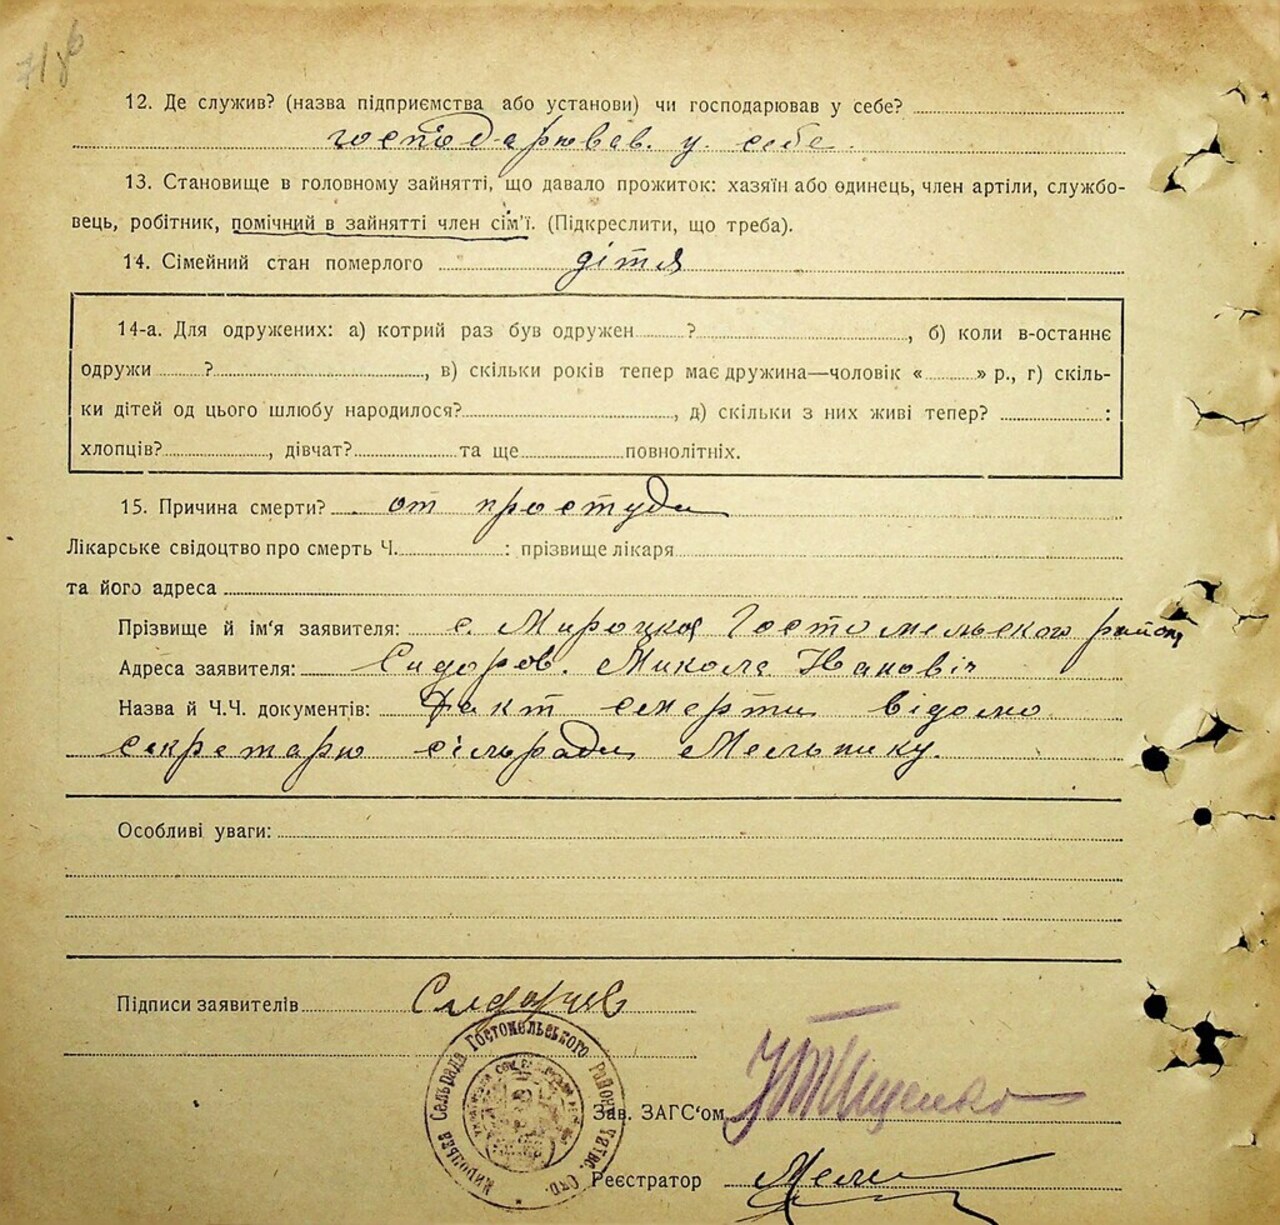 12. Де служив? (назва підприємства або установи) чи господарював у себе?
господарював. у. себе.
13. Становище в головному зайнятті, що давало прожиток: хазяїн або одинець, член артіли, службо-
вець, робітник, помічний в зайнятті член сім'ї. (Підкреслити, що треба).
14. Сімейний стан померлого дітя
14-а. Для одружених: а) котрий раз був одружен ? , б) коли в-останнє
одружи ? , в) скільки років тепер має дружина—чоловік « » р., г) скіль-
ки дітей од цього шлюбу народилося? , д) скільки з них живі тепер? :
хлопців? , дівчат? та ще повнолітніх.
15. Причина смерти? от простуди
Лікарське свідоцтво про смерть Ч. : прізвище лікаря
та його адреса
Прізвище й ім'я заявителя: с. Мироцкая Гостомельского району
Адреса заявителя: Сидоров. Микола Іванович
Назва й Ч.Ч. документів: Факт смерти відомо
секретарю сільради Мельнику.
Особливі уваги:
Підписи заявителів
Сельрада Гостомельського Району
Зав. ЗАГС'ом
Реєстратор